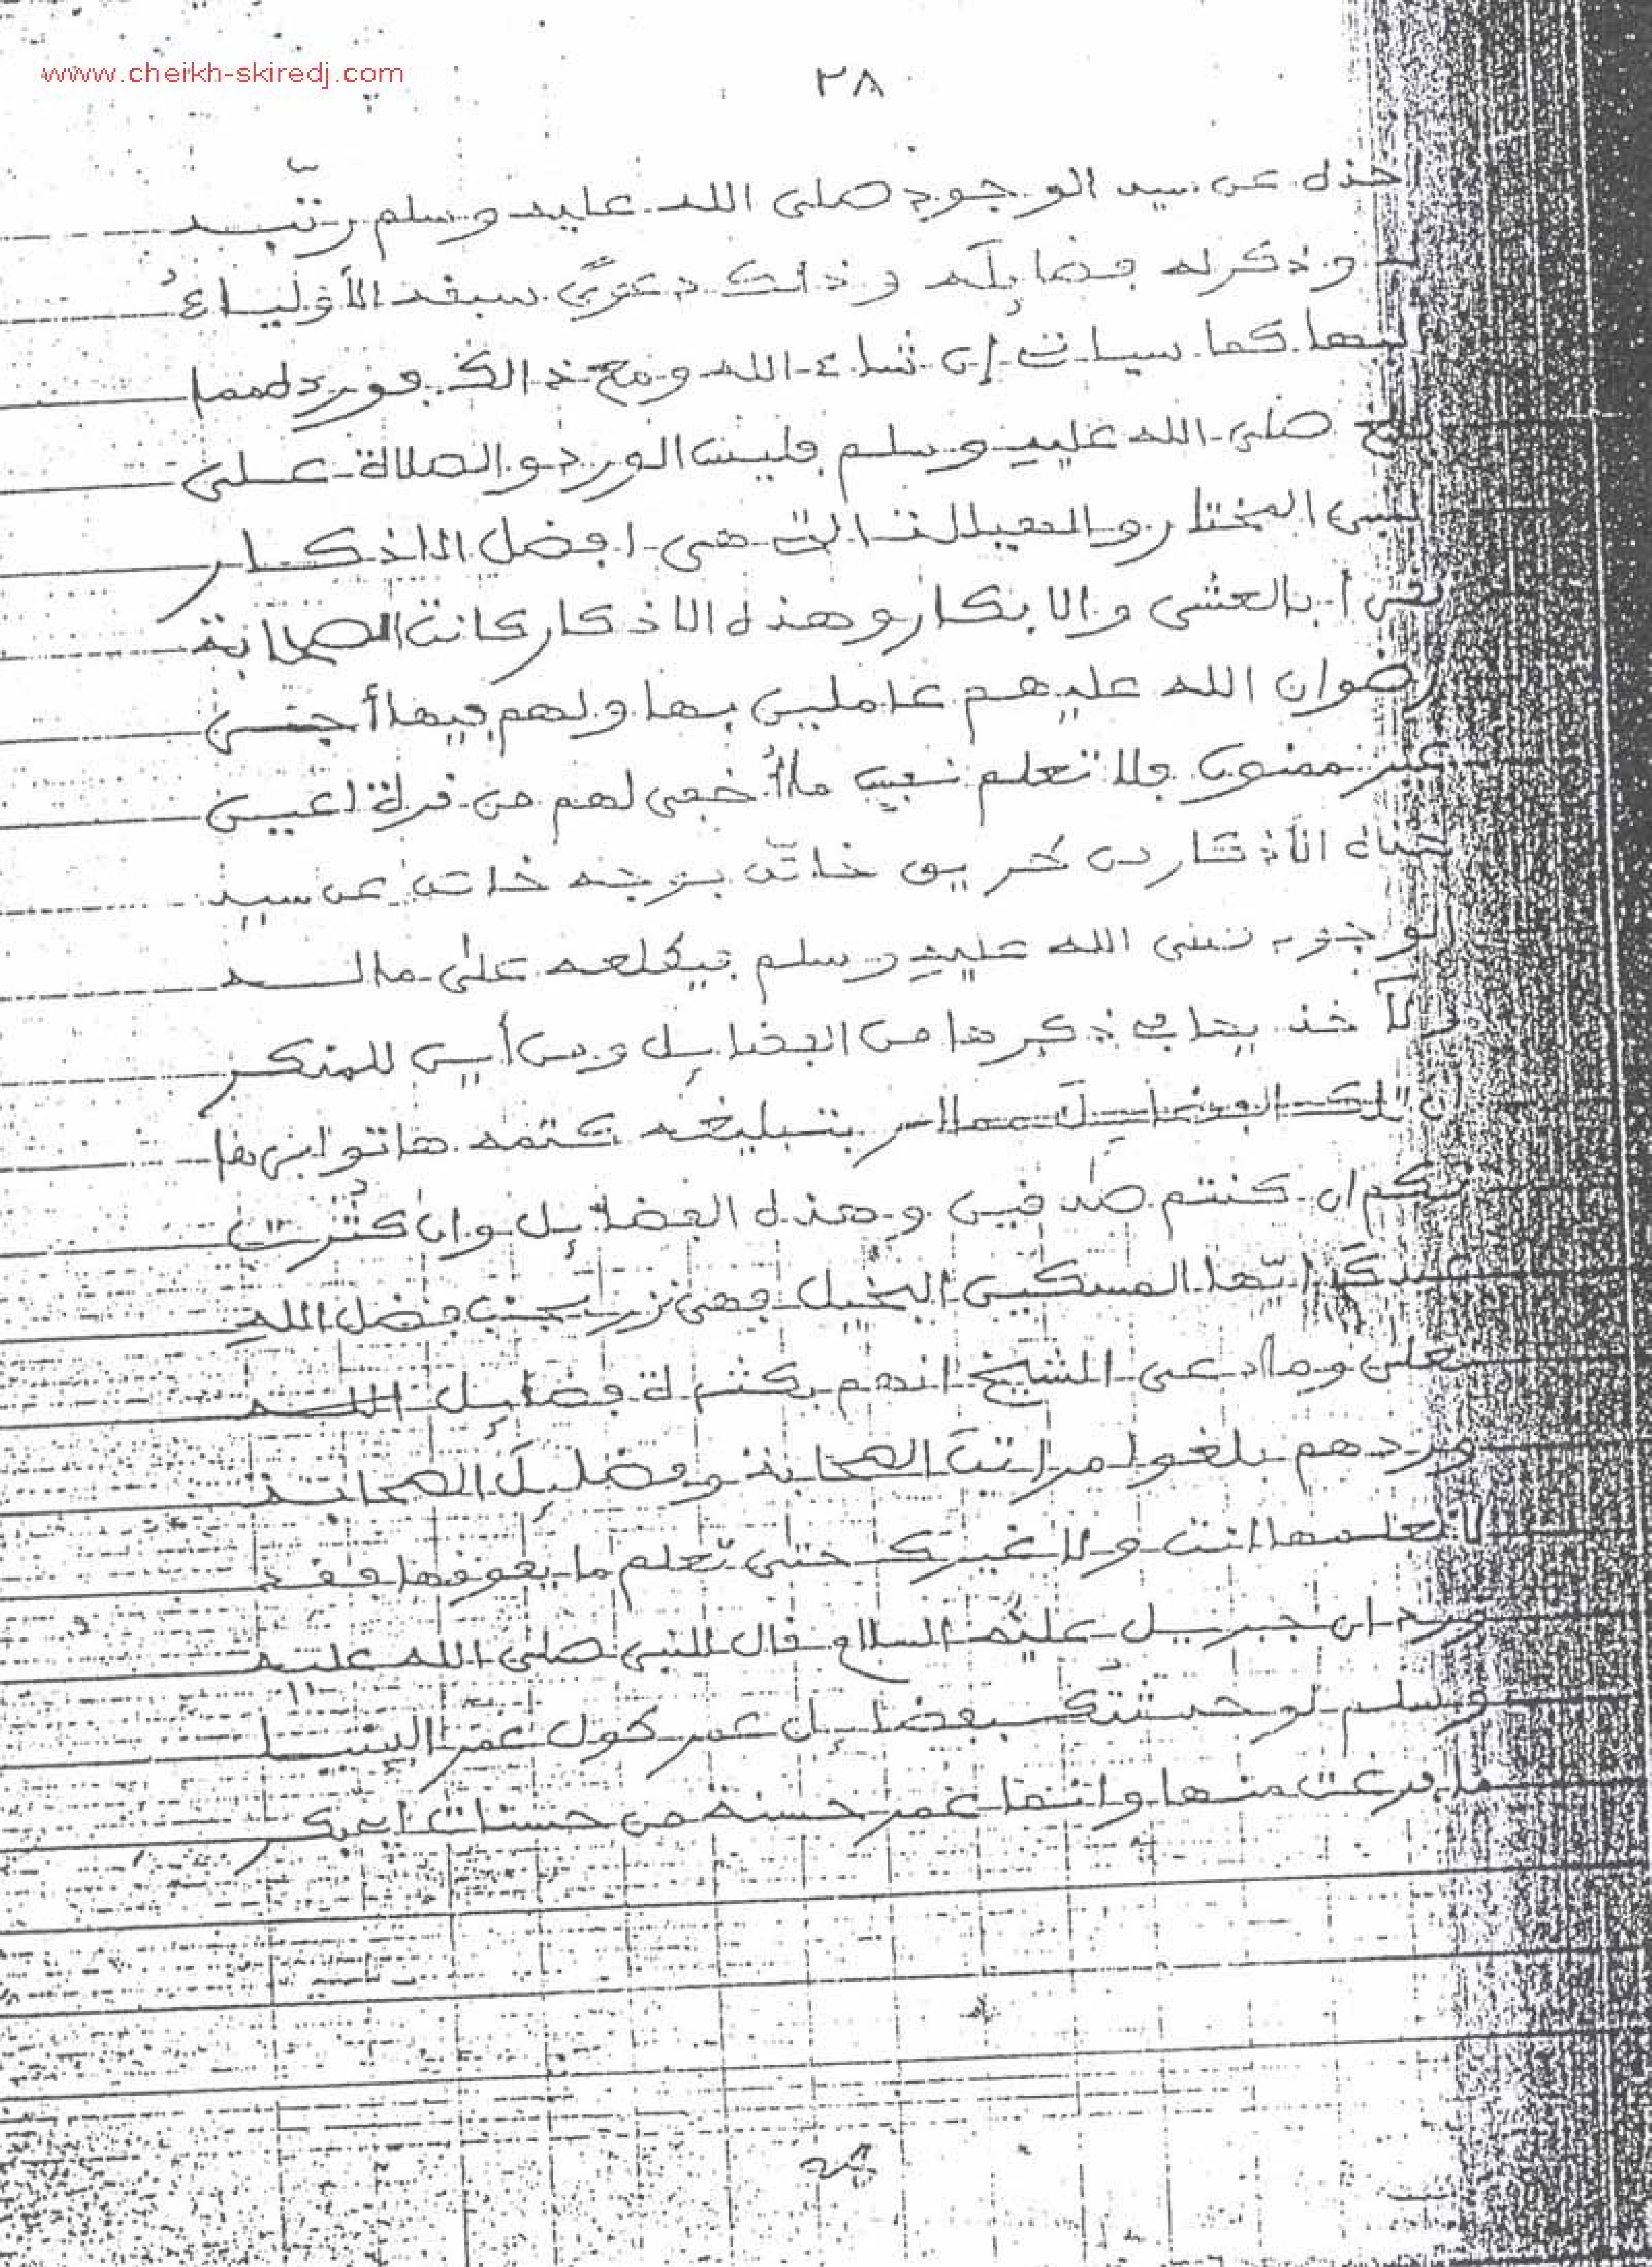 www.cheikh-skiredj.com
٢٨
خذه عن سيد الوجود صلى الله عليه وسلم رتبه
له وذكر له فضايله وذلك دعوى سبقه الأولياء
اليها كما سيات إن شاء الله ومع ذالك فورد لهما
صلى الله عليه وسلم فليس الورد والصلاة على
المختار والهيللة التي هي افضل الاذكار
بالعشي والابكار وهذه الاذكار كانت الصحابة
رضوان الله عليهم عاملين بها ولهم فيها أجر
غير ممنون فلا تعلم نفس ما أخفي لهم من قرة اعين
الأذكار من طريق خاص بوجه خاص عن سيد
الوجود صلى الله عليه وسلم فيطلعه على ماله
ذكرها من الفضايل ومن أين للمنكر
ان تلك الفضايل مما امر بتبليغه كتمه هاتوا برها
نكم ان كنتم صدقين وهذه الفضايل وان كثرت
عندك ايها المسكين البخيل فهي نزر بجنب فضل الله
تعلى وما ادعى الشيخ انهم بكثرة فضايل
وردهم بلغوا مراتب الصحابة وفضايل الصحابة
لا تعلمها انت ولا غيرك حتى تعلم ما يفوقها فقد
ورد ان جبريل عليه السلام قال للنبي صلى الله عليه
وسلم لو حدثتك بفضايل عمر طول عمر الدنيا
ما فرغت منها وانما عمر حسنة من حسنات ابي بكر